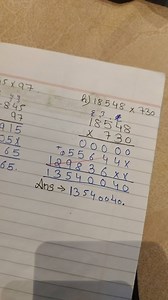 5 x 97
845
97
915
05x
65
65.
2) 18548 x 730
18548
x 730
00000
55644x
129836xx
13540040
Ans → 13540040.